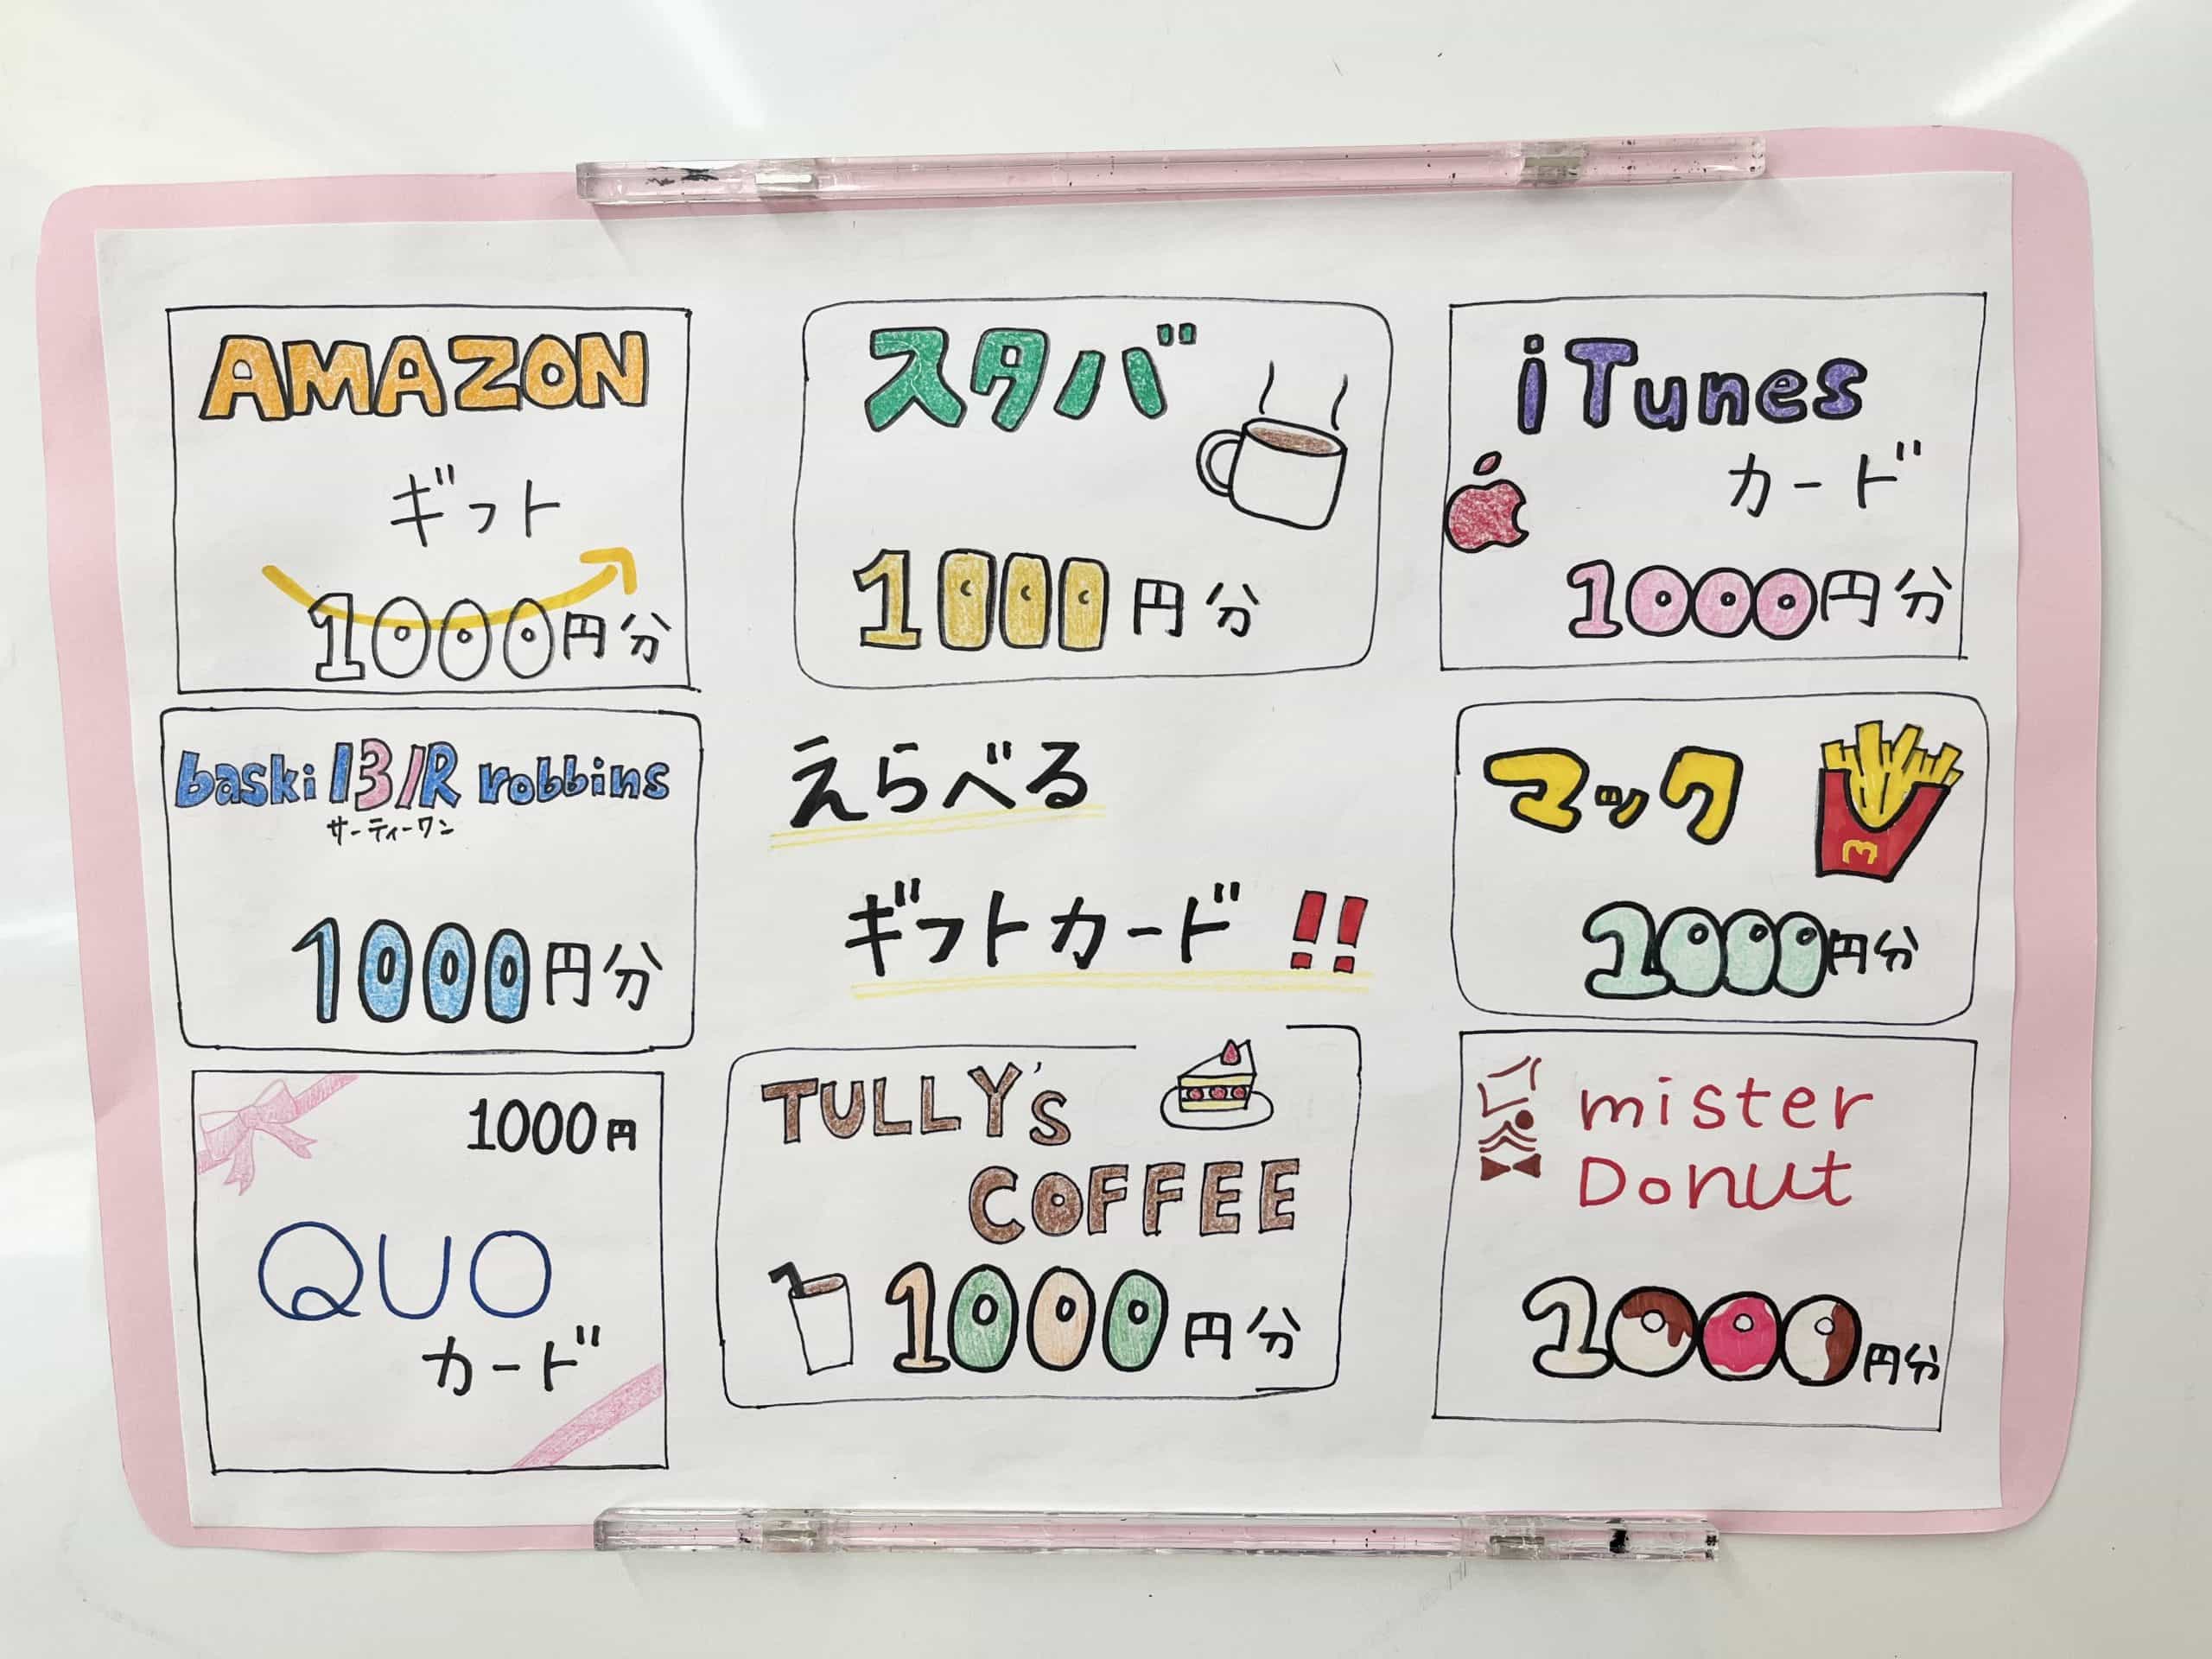 AMAZON
ギフト
1000円分
スタバ
1000円分
iTunes
カード
1000円分
baski 13/R robbins
サーティーワン
1000円分
えらべる
ギフトカード!!
マック
1000円分
1000円
QUO
カード
TULLY's
COFFEE
1000円分
mister
Donut
1000円分